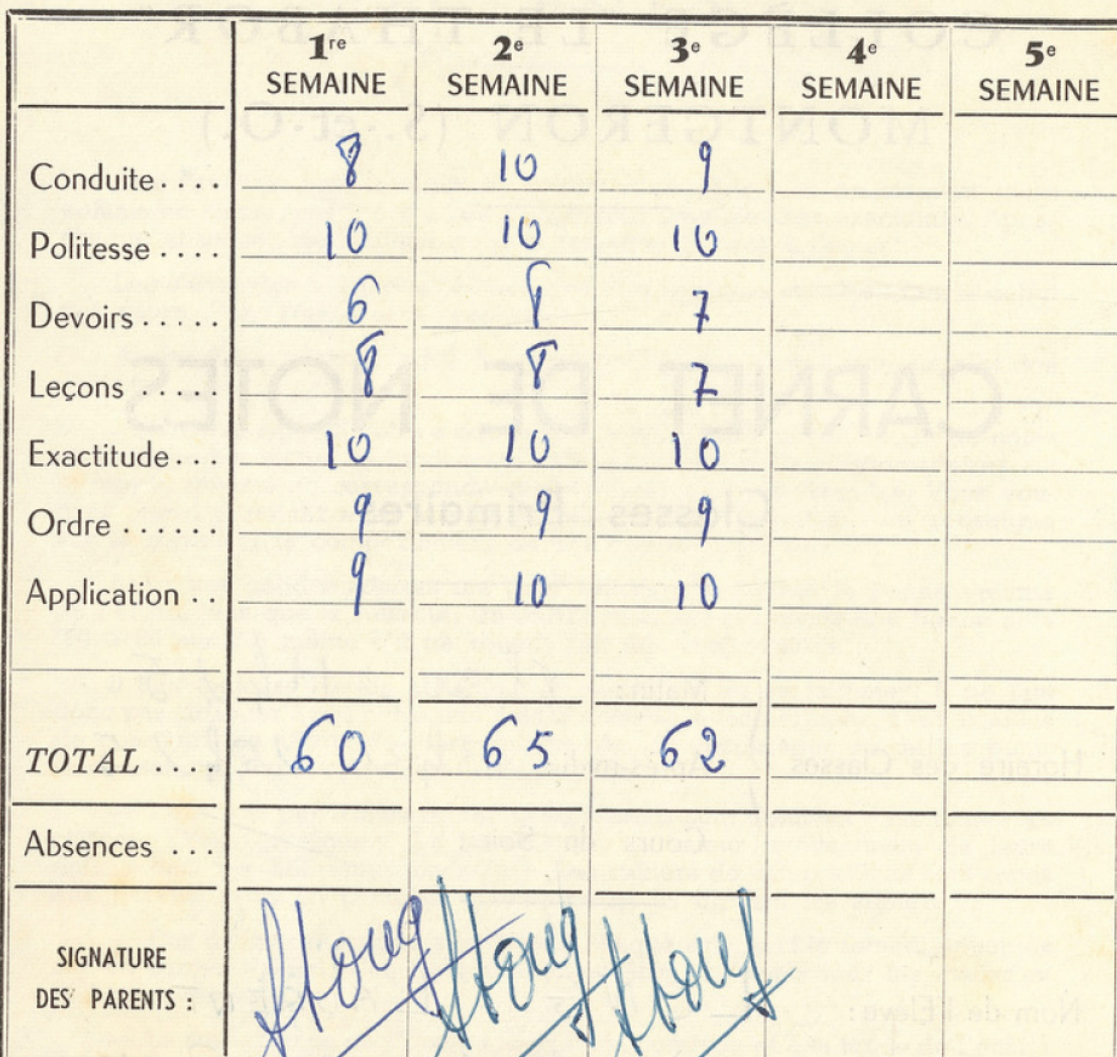 1re 2e 3e 4e 5e
SEMAINE SEMAINE SEMAINE SEMAINE SEMAINE
Conduite.... 8 10 9
Politesse.... 10 10 10
Devoirs..... 6 8 7
Leçons ..... 8 8 7
Exactitude... 10 10 10
Ordre ..... 9 9 9
Application .. 9 10 10
TOTAL .... 60 65 62
Absences ...
SIGNATURE
DES PARENTS :